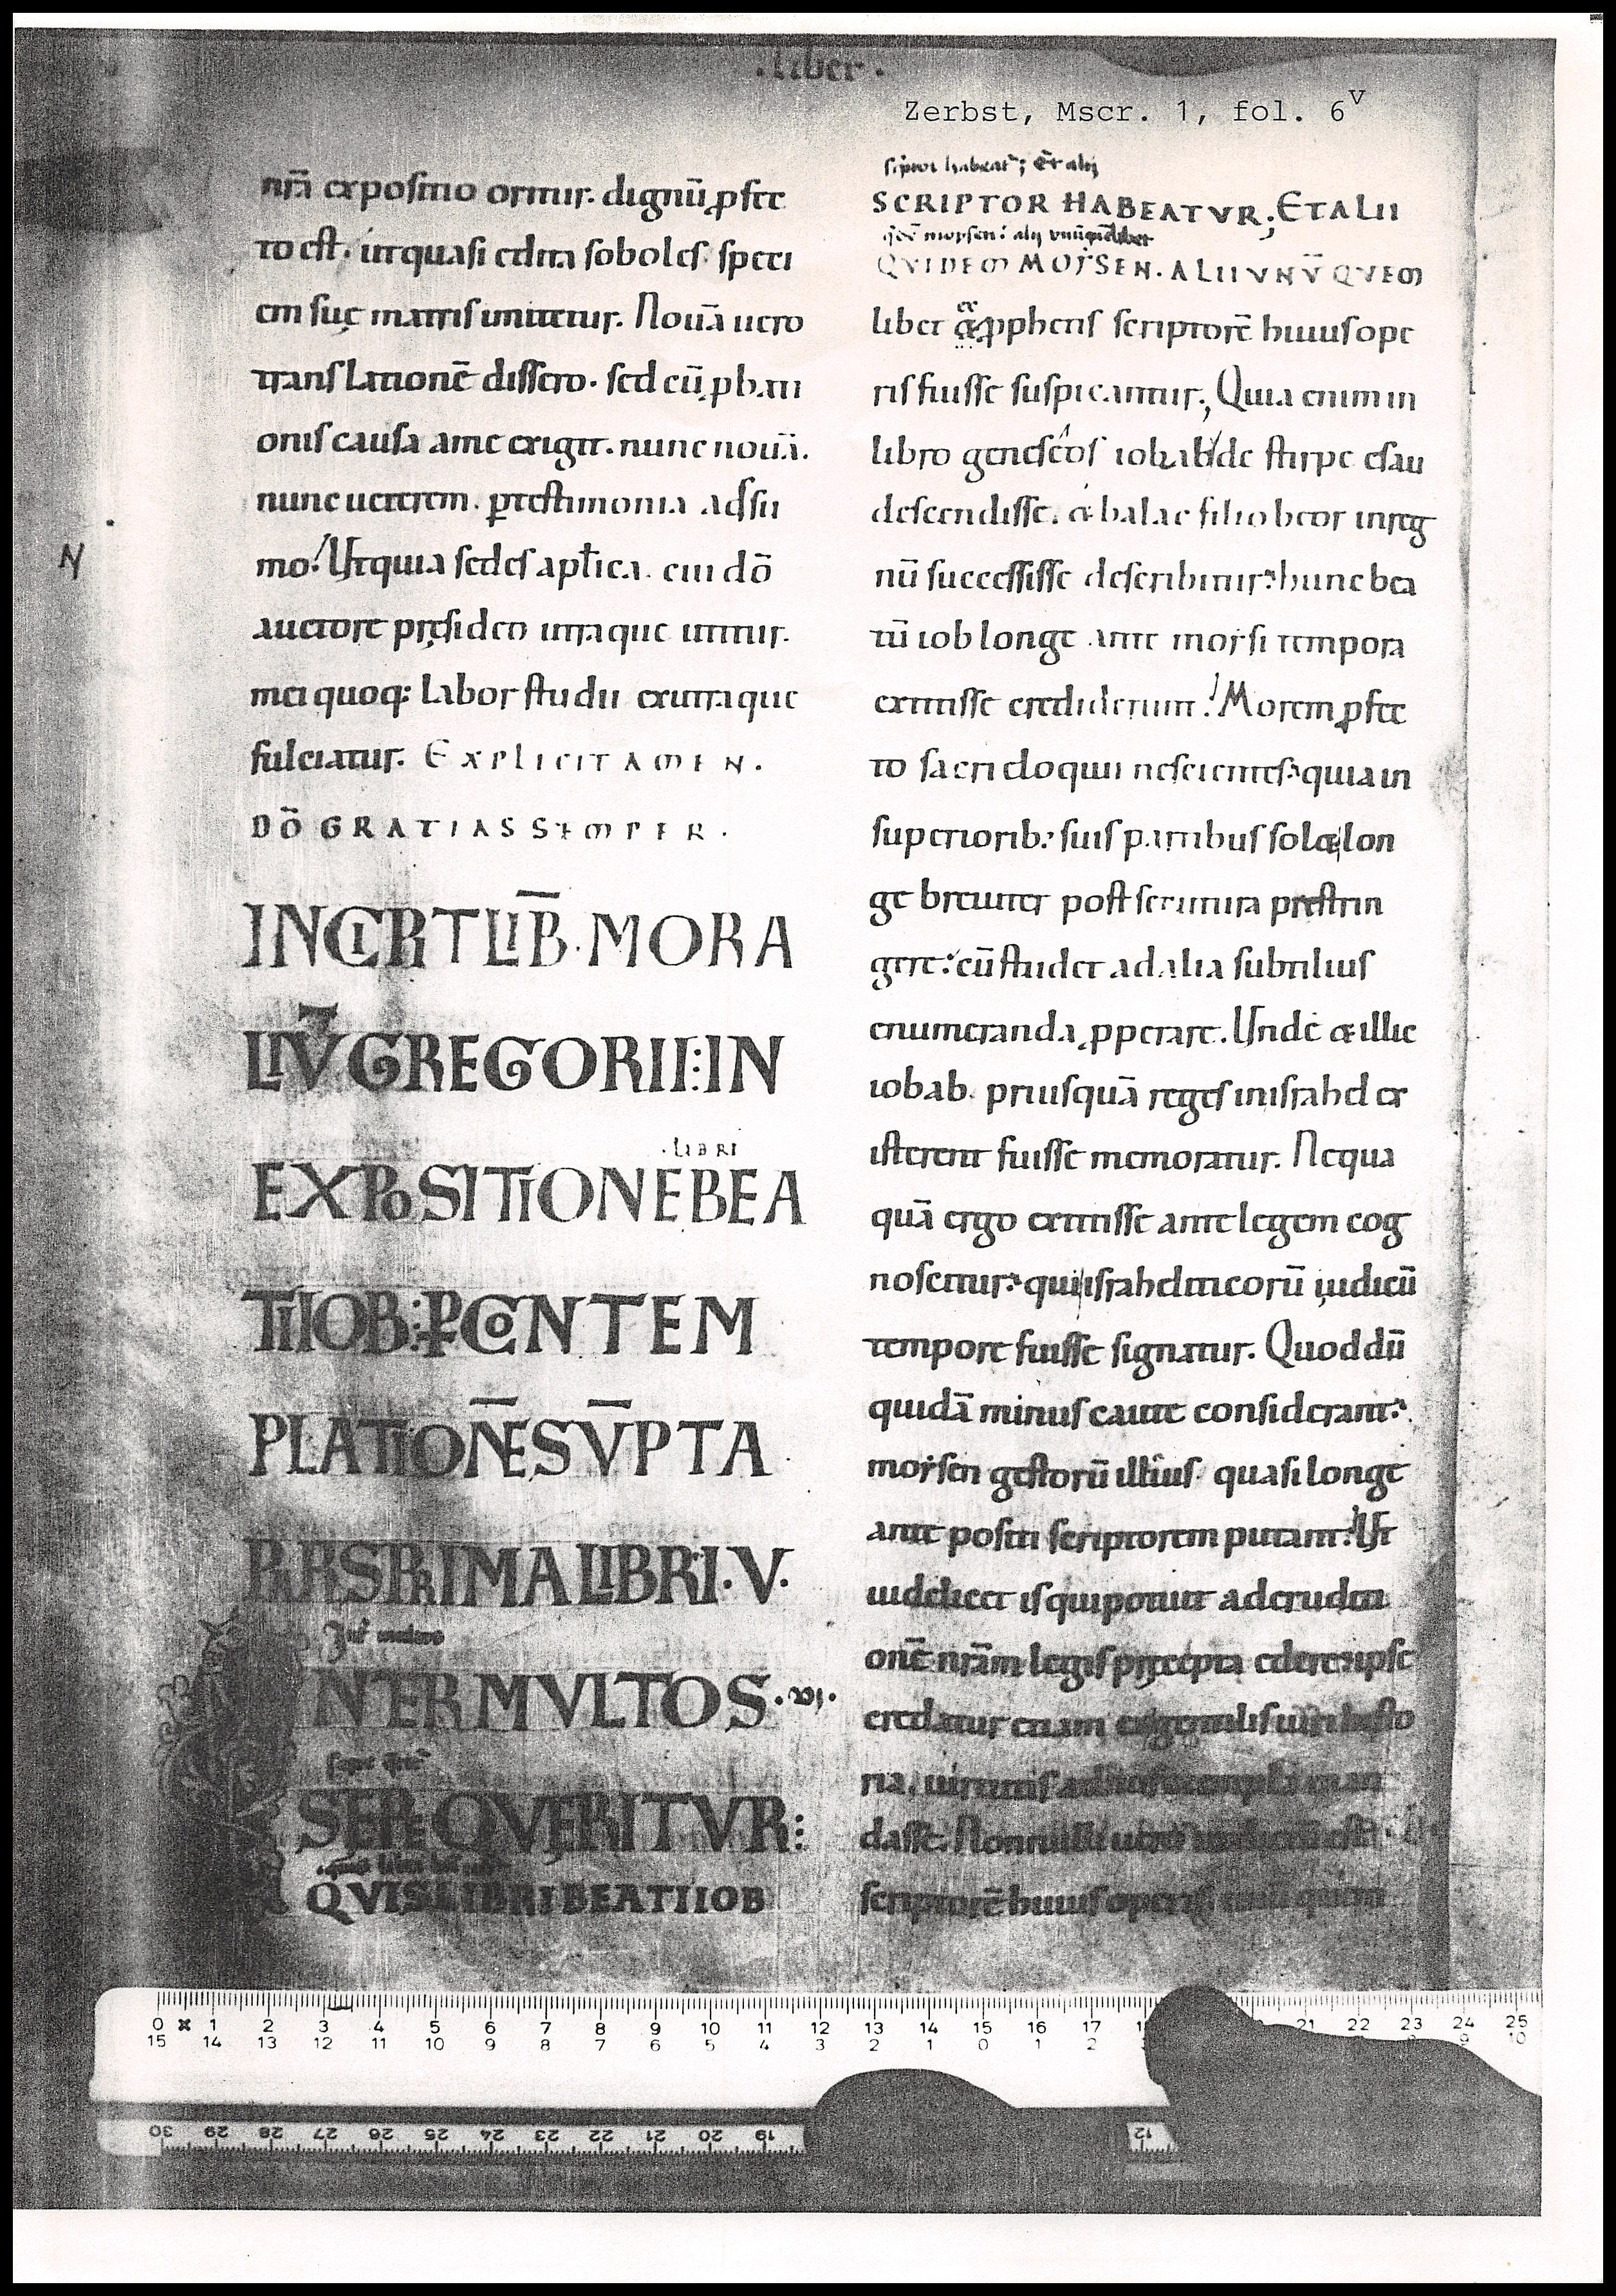 · liber ·
Zerbst, Mscr. 1, fol. 6v
nr̄a expositio oritur. dignū ꝓfec
to est. ut quasi edita soboles speci
em suę matris imitetur. Nouā uero
translationē dissero. sed cū ꝓbati
onis causa me exigit. nunc nouā.
nunc ueterem. ꝑ testimonia adsu
mo. Ut quia sedes aplīca. cui dō
N
auctore pręsideo utraque utitur.
mei quoq; labor studii ex utraque
fulciatur. EXPLICIT AMEN.
DŌ GRATIAS SEMPER.
INCIPIT LIB̄. MORA
LIŪ GREGORII: IN
· LIBRI
EXPOSITIONE BEA
TI IOB: ꝑ CONTEM
PLATIONĒ SŪPTA
PARS PRIMA LIBRI. V.
Int̄ multos
INTER MVLTOS
sepe
SEPE QVERITVR:
QVIS LIBRI BEATI IOB
scriptor habeat᷑; Et alij
SCRIPTOR HABEATVR; ET ALII
moysen: alij unūquēlibet
QVIDEM MOYSEN. ALII VNV̄QVEM
ex
libet & ꝓphetis scriptorē huius ope
ris fuisse suspicantur; Quia enim in
libro geneseos iobab de stirpe esau
descendisse. & balac filio beor in reg
nū successisse describitur: hunc bea
tū iob longe ante moysi tempora
extitisse crediderunt. Morem ꝓfec
to sacri eloquii nescientes: quia in
superiorib: suis partibus sol& lon
ge breuiter post scritura prestrin
gere: cū studet ad alia subtilius
enumeranda ꝓperare. Unde & illic
iobab. priusquā reges in israhel ex
isterent fuisse memoratur. Nequa
quā ergo extitisse ante legem cog
noscitur: qui israheliticorū iudicū
tempore fuisse signatur. Quod dū
quidā minus caute considerant:
moysen gestorū illius quasi longe
ante positi scriptorem putant: Ut
uidelicet is qui potuit ad eruditi
onē nr̄am legis pręcepta edere: ipse
credatur etiam ex gentilis uiri histo
ria. uirtutis ad nos exempla man
dasse. Nonnulli uero
scriptorē huius operis unū quem
0 1 2 3 4 5 6 7 8 9 10 11 12 13 14 15 16 17 21 22 23 24 25
15 14 13 12 11 10 9 8 7 6 5 4 3 2 1 0 1 2
30 29 28 27 26 25 24 23 22 21 20 19 12